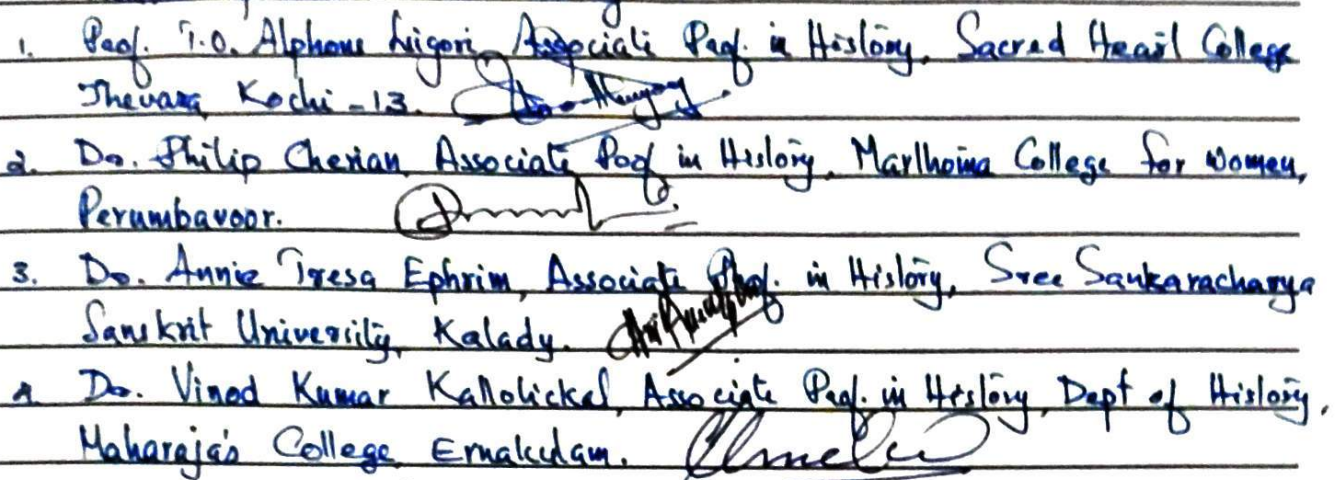 1. Prof. T.O. Alphons Ligori, Associate Prof. in History, Sacred Heart College
Thevara, Kochi -13.
2. Dr. Philip Cherian, Associate Prof in History, Marthoma College for Women,
Perumbavoor.
3. Dr. Annie Tresa Ephrim, Associate Prof. in History, Sree Sankaracharya
Sanskrit University, Kalady.
4. Dr. Vinod Kumar Kallolickal, Associate Prof. in History, Dept of History,
Maharaja's College, Ernakulam.